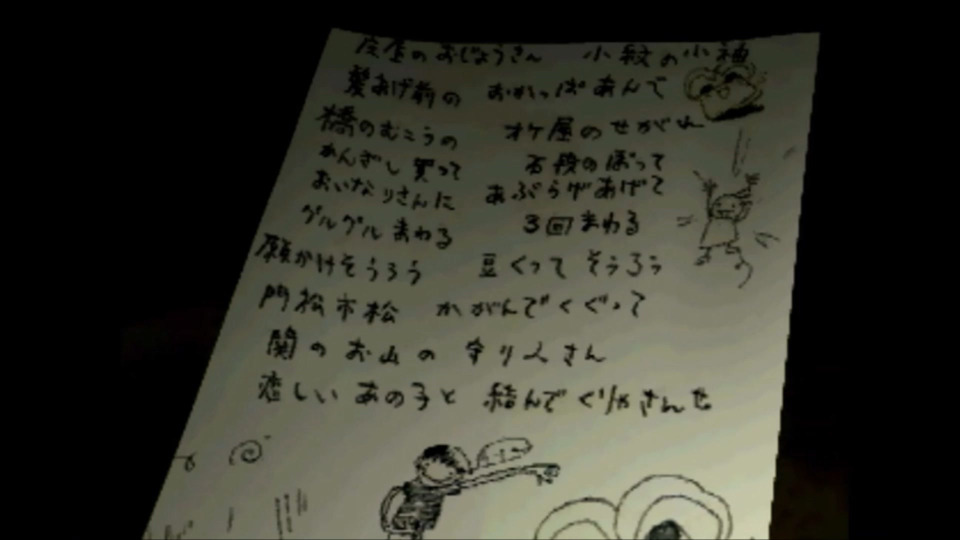 庄屋のおじょうさん 小紋の小袖
髪あげ前の おかっぱあんで
橋のむこうの オケ屋のせがれ
かんざし買って 石段のぼって
おいなりさんに あぶらげあげて
グルグルまわる 3回まわる
願かけそうろう 豆くってそうろう
門松市松 かがんでくぐって
関のお山の 守り人さん
恋しいあの子と 結んでくりゃさんせ